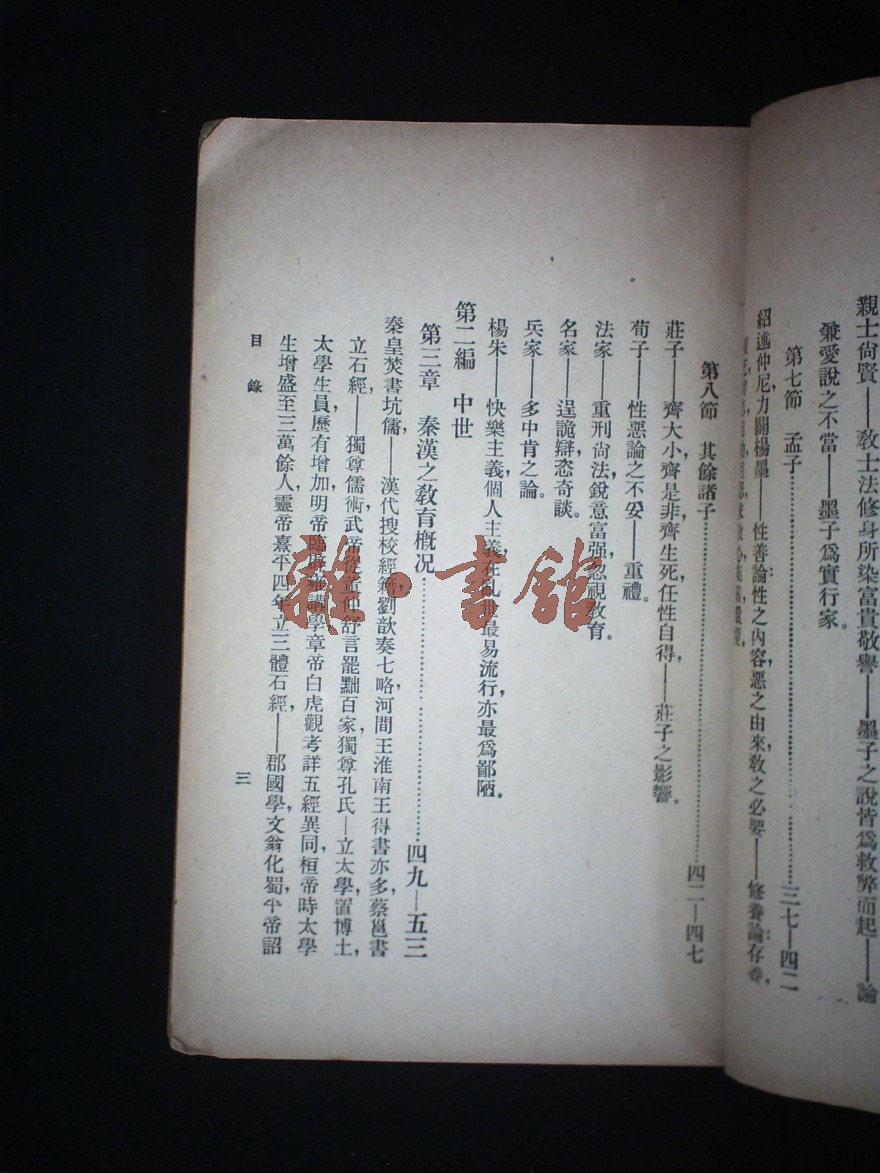 親士尙賢——敎士法修身所染富貴敬譽——墨子之說皆爲救弊而起——論
兼愛說之不當——墨子爲實行家。
第七節 孟子……三七—四二
紹述仲尼,力闢楊墨——性善論:性之內容,惡之由來,敎之必要——修養論:存養,
第八節 其餘諸子……四二—四七
莊子——齊大小,齊是非,齊生死,任性自得,——莊子之影響。
荀子——性惡論之不妥——重禮。
法家——重刑尙法,銳意富强,忽視敎育。
名家——逞詭辯,恣奇談。
兵家——多中肯之論。
楊朱——快樂主義,個人主義,在亂世最易流行,亦最爲鄙陋。
第二編 中世
第三章 秦漢之敎育槪况……四九—五三
秦皇焚書坑儒——漢代搜校經籍,劉歆奏七略,河間王淮南王得書亦多,蔡邕書
立石經——獨尊儒術,武帝從董仲舒言罷黜百家,獨尊孔氏—立太學,置博士,
太學生員,歷有增加,明帝臨辟雍講學,章帝白虎觀考詳五經異同,桓帝時太學
生增盛至三萬餘人,靈帝熹平四年立三體石經,——郡國學,文翁化蜀,平帝詔
目錄
三
雜·書館